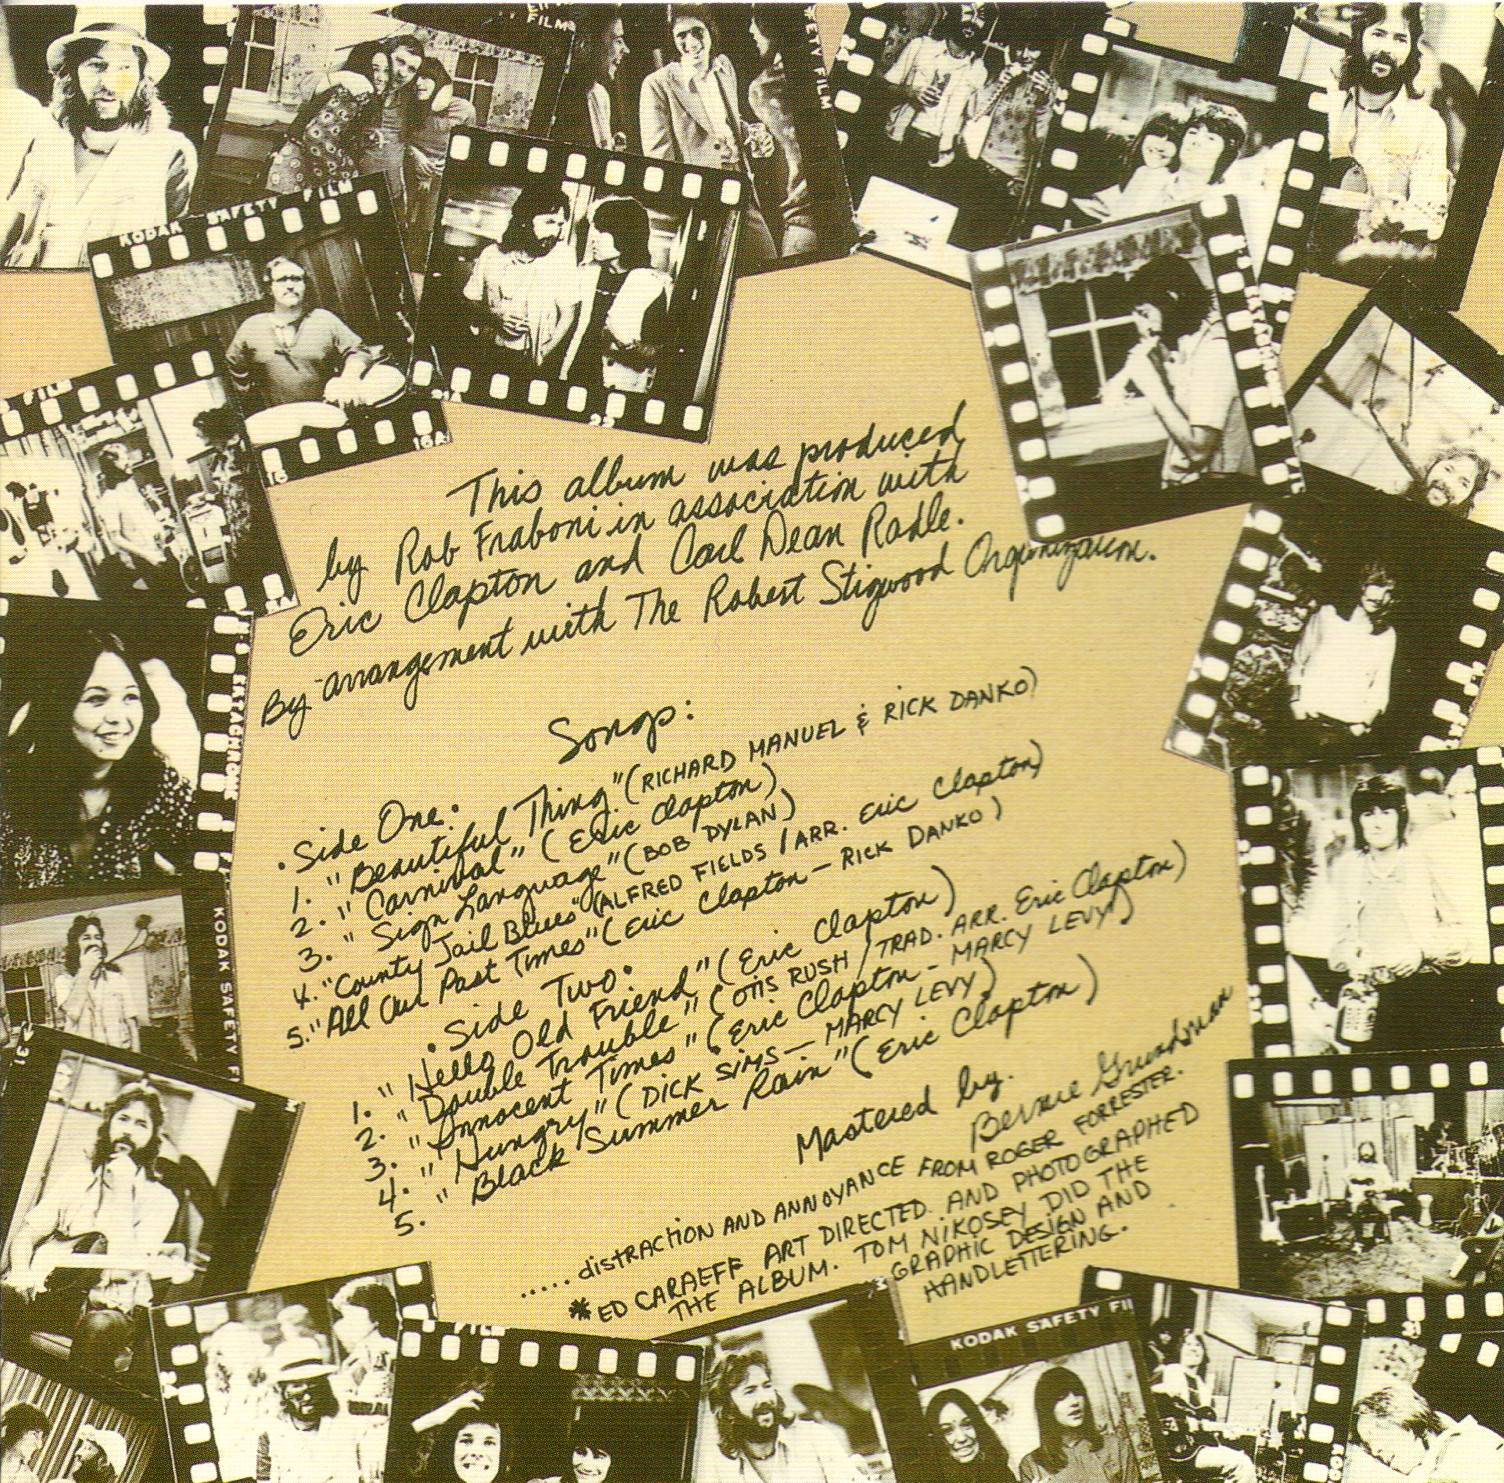 This album was produced
by Rob Fraboni in association with
Eric Clapton and Carl Dean Radle.
By arrangement with The Robert Stigwood Organization.
Songs:
• Side One •
1. "Beautiful Thing" (RICHARD MANUEL & RICK DANKO)
2. "Carnival" (Eric Clapton)
3. "Sign Language" (BOB DYLAN)
4. "County Jail Blues" (ALFRED FIELDS / ARR. Eric Clapton)
5. "All Our Past Times" (Eric Clapton — RICK DANKO)
• Side Two •
1. "Hello Old Friend" (Eric Clapton)
2. "Double Trouble" (OTIS RUSH / TRAD. ARR. Eric Clapton)
3. "Innocent Times" (Eric Clapton - MARCY LEVY)
4. "Hungry" (DICK SIMS — MARCY LEVY)
5. "Black Summer Rain" (Eric Clapton)
Mastered by.
Bernie Grundman
..... distraction AND ANNOYANCE FROM ROGER FORRESTER.
*ED CARAEFF ART DIRECTED AND PHOTOGRAPHED
THE ALBUM. TOM NIKOSEY DID THE
GRAPHIC DESIGN AND
HANDLETTERING.
KODAK SAFETY FILM
FILM
ETY FILM
16
16A
21A
22
KODAK SAFETY
31
KODAK SAFETY FI